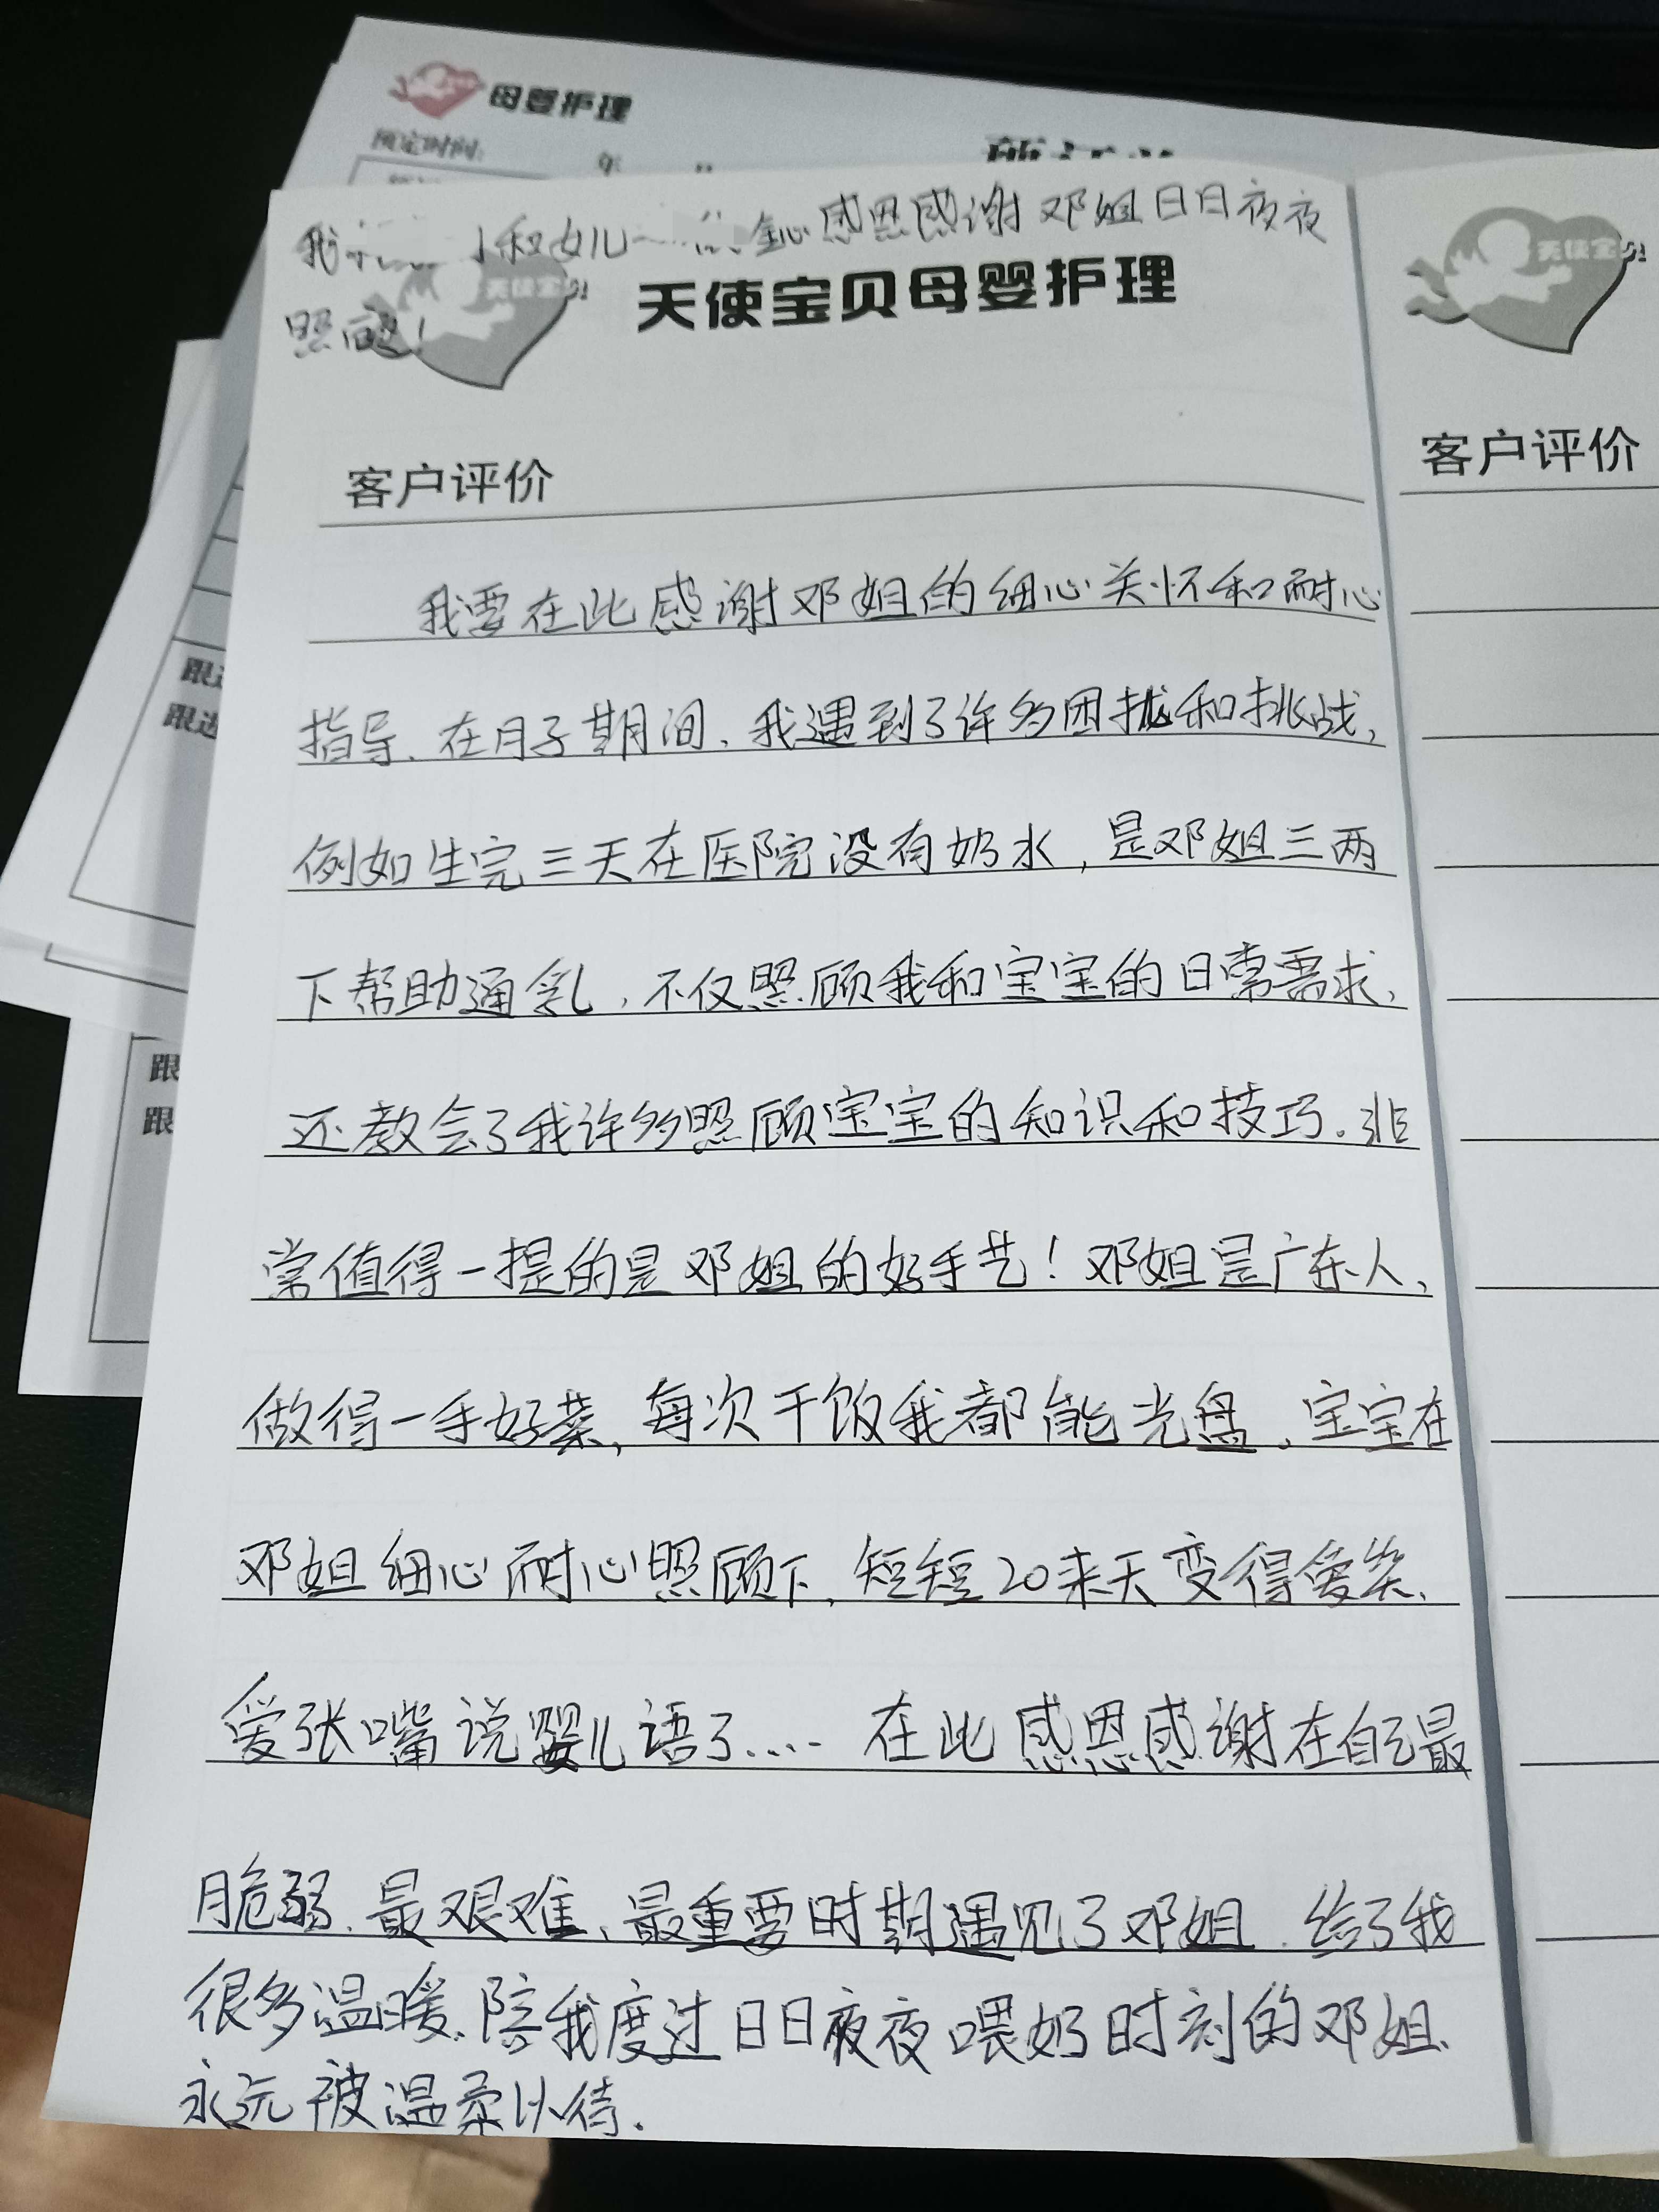 母婴护理
预定时间:
年
我 和女儿 全心感恩感谢邓姐日日夜夜
照顾!
天使宝贝母婴护理
天使宝贝
天使宝贝
客户评价
客户评价
我要在此感谢邓姐的细心关怀和耐心
指导、在月子期间,我遇到了许多困扰和挑战,
例如生完三天在医院没有奶水,是邓姐三两
下帮助通乳,不仅照顾我和宝宝的日常需求,
还教会了我许多照顾宝宝的知识和技巧.非
常值得一提的是邓姐的好手艺!邓姐是广东人,
做得一手好菜,每次干饭我都能光盘、宝宝在
邓姐细心耐心照顾下,短短20来天变得爱笑、
爱张嘴说婴儿语了.... 在此感恩感谢在自己最
脆弱、最艰难、最重要时期遇见了邓姐.给了我
很多温暖.陪我度过日日夜夜喂奶时刻的邓姐、
永远被温柔以待.
跟进
跟进
跟
跟